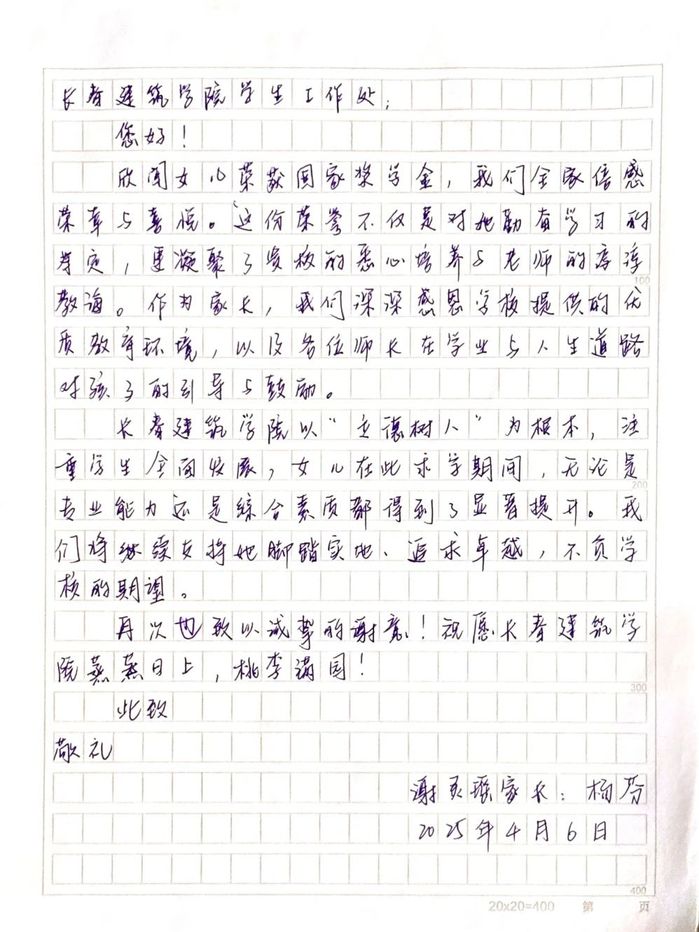 长春建筑学院学生工作处:
您好!
欣闻女儿荣获国家奖学金,我们全家倍感
荣幸与喜悦。这份荣誉不仅是对她勤奋学习的
肯定,更凝聚了贵校的悉心培养与老师的谆谆
教诲。作为家长,我们深深感恩学校提供的优
质教育环境,以及各位师长在学业与人生道路
对孩子的引导与鼓励。
长春建筑学院以"立德树人"为根本,注
重学生全面发展,女儿在此求学期间,无论是
专业能力还是综合素质都得到了显著提升。我
们将继续支持她脚踏实地、追求卓越,不负学
校的期望。
再次也致以诚挚的谢意!祝愿长春建筑学
院蒸蒸日上,桃李满园!
此致
敬礼
谢家长:杨芬
2025年4月6日
100
200
300
400
20x20=400 第 页